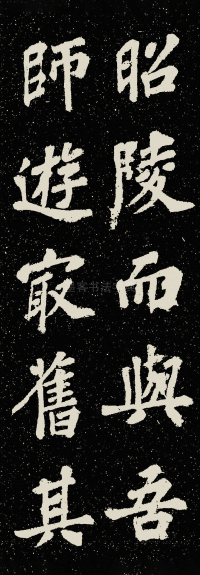 昭陵而與吾
師遊冣舊其